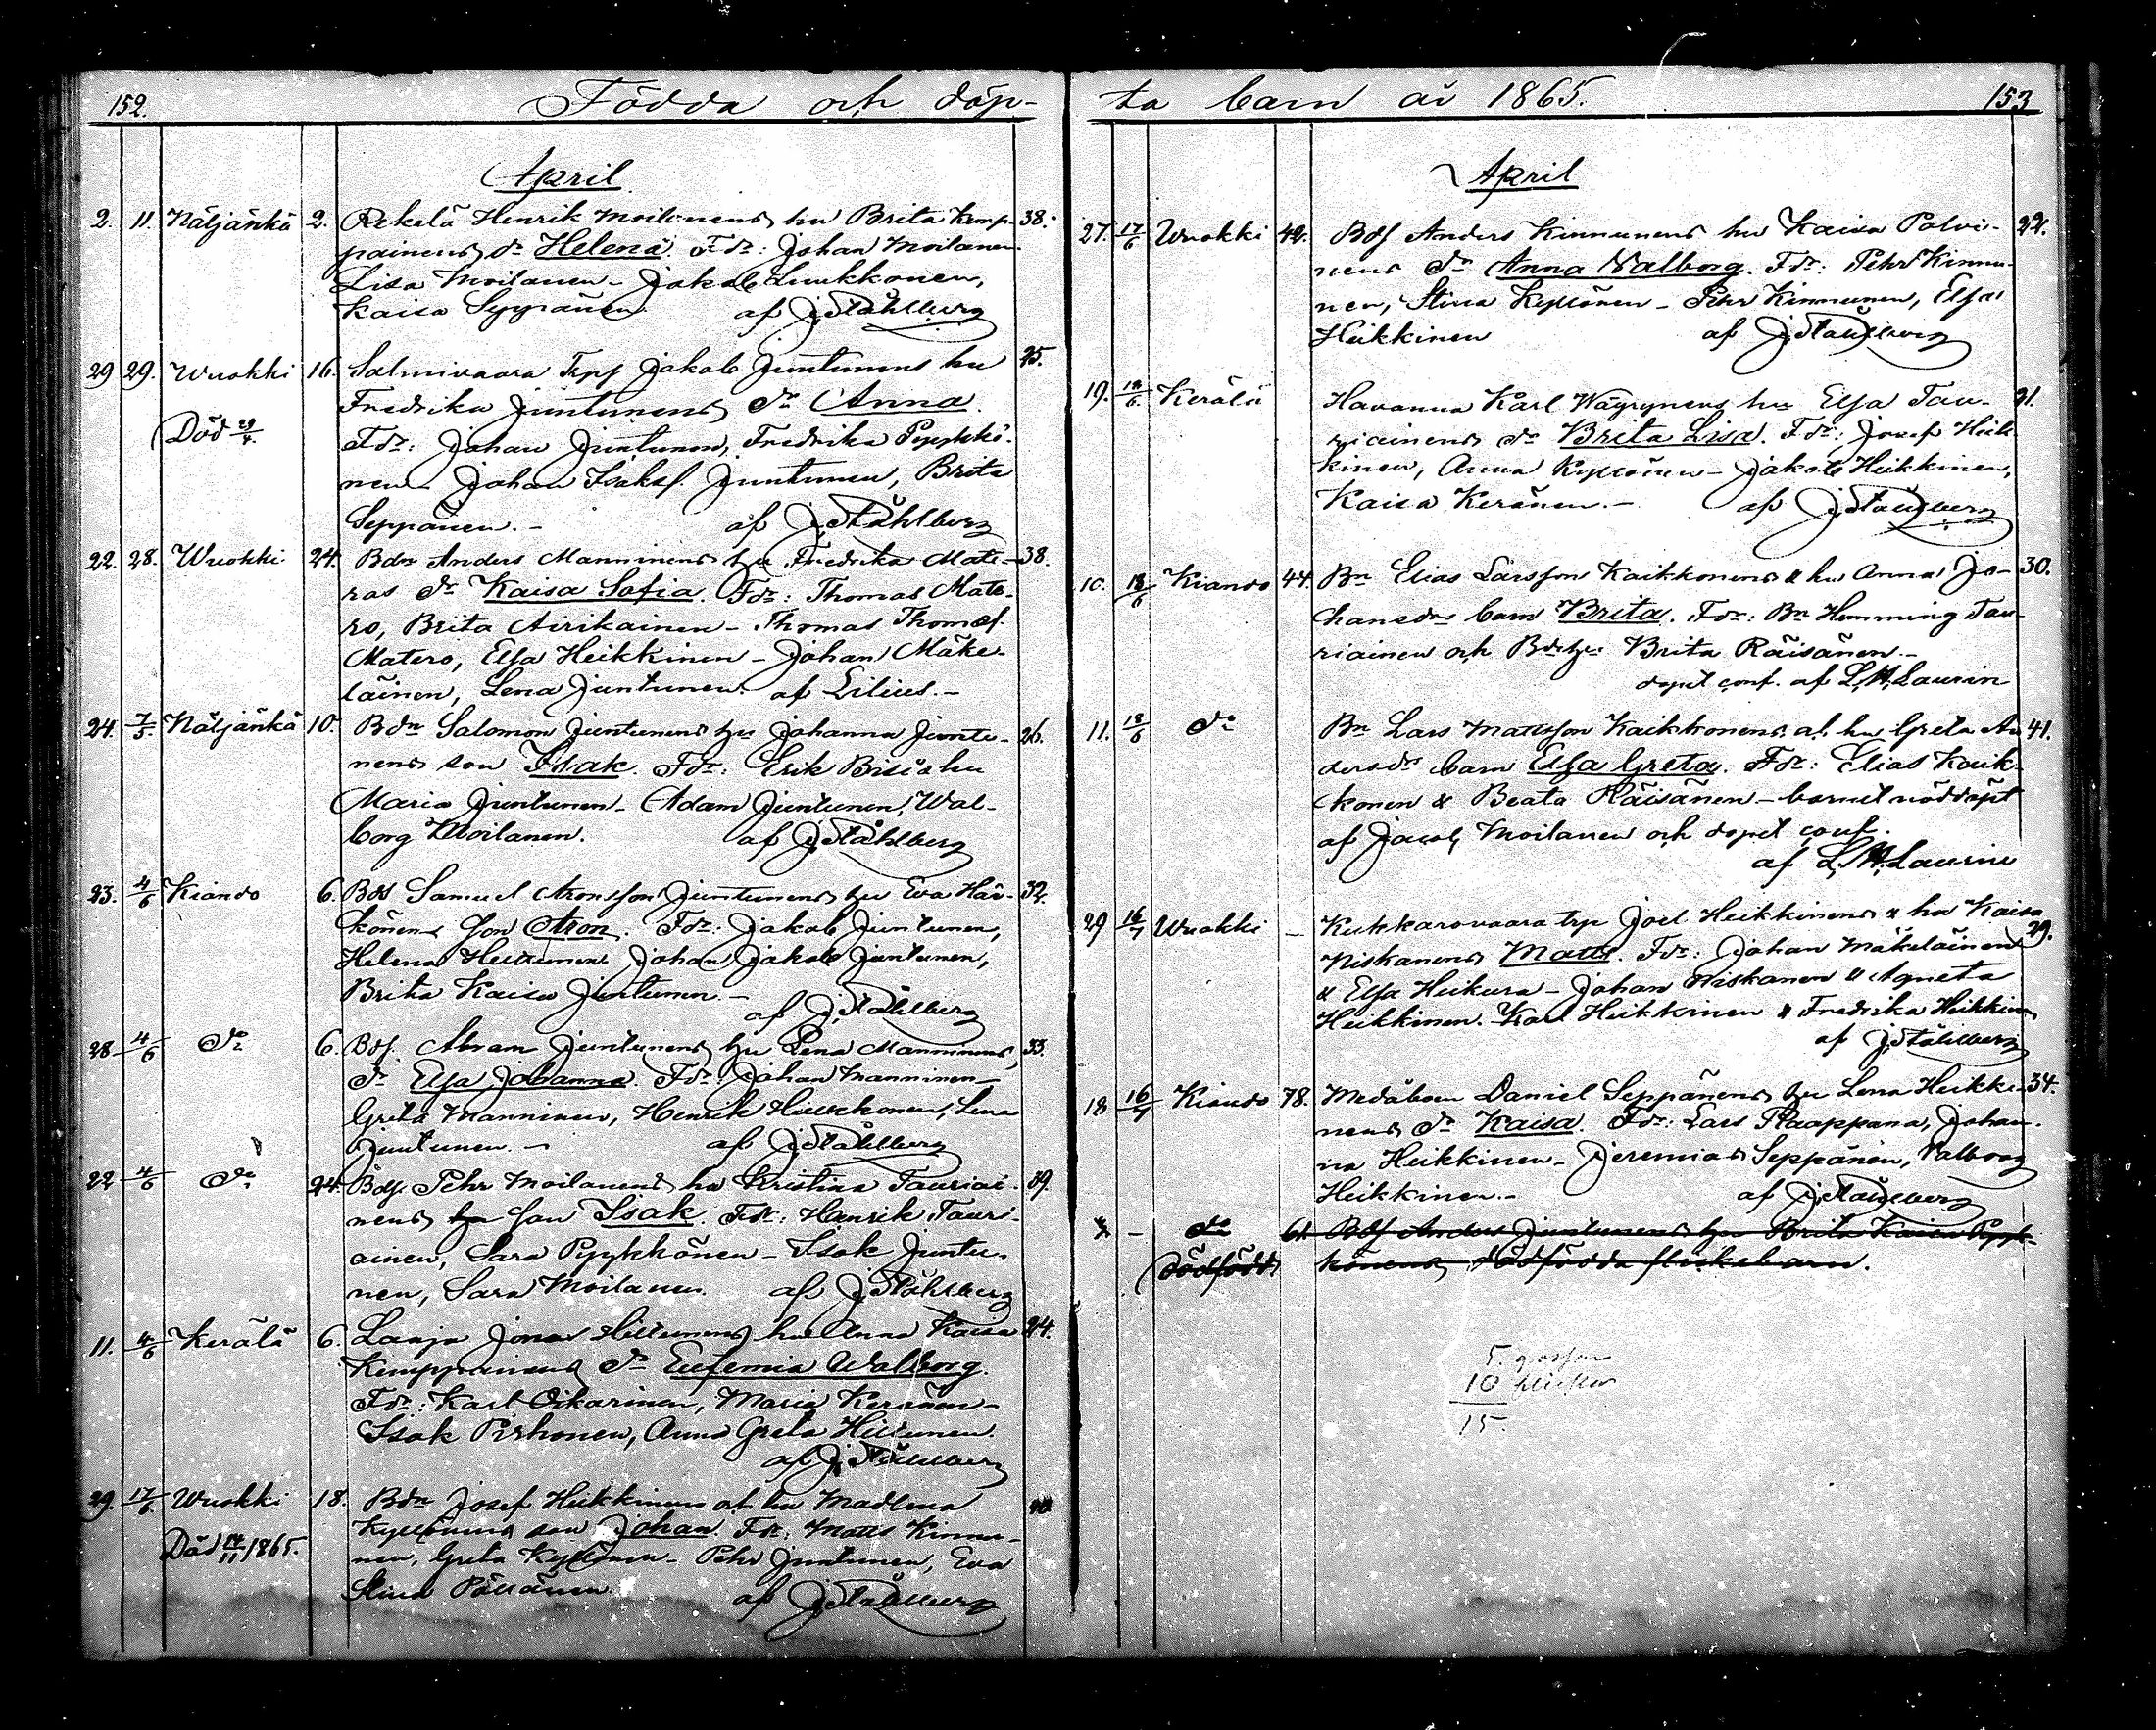 152. Födda och döp-
April
2. 11. Näljänkä 2. Rekelä Henrik Moilanens hu Brita Kemp- 38.
painens dr Helena. Fdr: Johan Moilanen
Lisa Moilanen - Jakob Luukkonen,
Kaisa Seppänen af J. Ståhlberg
29 29. Wuokki 16. Salmivaara Trpf Jakob Juntunens hu 25.
Fredrika Juntunens dr Anna.
Död 29/4. Fdr: Johan Juntunen, Fredrika Pyykkö-
nen - Johan Isaksf. Juntunen, Brita
Seppänen. - af J. Ståhlberg
22. 28. Wuokki 24. Bdn Anders Manninens hu Fredrika Mate- 38.
ros dr Kaisa Sofia. Fdr: Thomas Mate-
ro, Brita Airikainen - Thomas Thomasf.
Matero, Elsa Heikkinen - Johan Mäke-
läinen, Lena Juntunen. af Lilius. -
24. 7/5. Näljänkä 10. Bdn Salomon Juntunens hu Johanna Juntu- 26.
nens son Isak. Fdr: Erik Bisi & hu
Maria Juntunen - Adam Juntunen, Wal-
borg Moilanen. af J. Ståhlberg
23. 4/6 Kiando 6. Bds Samuel Aronsson Juntunens hu Eva Här- 32.
könens Son Aron. Fdr: Jakob Juntunen,
Helena Heittunen Johan Jakob Juntunen,
Brita Kaisa Juntunen - af J. Ståhlberg
28 4/6 do 6. Bdf. Abram Juntunens hu Lena Manninens, 33.
dr Elsa Johanna. Fdr: Johan Manninen -
Greta Manninen, Henrik Huukkonen, Lena
Juntunen. - af J. Ståhlberg
22 4/6 do 24. Bdf. Pehr Moilanens hu Kristina Tauriai- 39.
nens hu Son Isak. Fdr: Henrik Tauri-
ainen, Sara Pyykkönen - Isak Juntu-
nen, Sara Moilanen. af J. Ståhlberg
11. 4/6 Kerälä 6. Laaja Jonas Hiltunens hu Anna Kaisa 24.
Kemppainens dr Eufemia Walborg.
Fdr: Karl Oikarinen, Maria Keränen -
Isak Pirhonen, Anna Greta Hiltunen
af J. Ståhlberg
29. 17/6. Wuokki 18. Bdn Josef Heikkinens o. h. hu Madlena 40.
Kyllönens son Johan. Fdr: Matts Kinnu-
Död 14/11 1865. nen, Greta Kyllönen - Pehr Juntunen, Eva
Stina Pöllänen. af J. Ståhlberg
ta barn år 1865. 153
April
27. 17/6 Wuokki 42. Bdf Anders Kinnunens hu Kaisa Polvi- 22.
nens dr Anna Walborg. Fdr: Pehr Kinnu-
nen, Stina Kyllönen - Pehr Kinnunen, Elsa
Heikkinen af J. Ståhlberg
19. 18/6. Kerälä Havanna Karl Wäyrynens hu Elsa Tau- 21.
riainens dr Brita Lisa. Fdr: Josef Heik-
kinen, Anna Kyllönen - Jakob Heikkinen,
Kaisa Keränen. - af J. Ståhlberg
10. 18/6 Kiando 44. Bn Elias Larsson Kaikkonens & hu Anna Jo- 30.
hansdr barn Brita. Fdr: Bn Hemming Tau-
riainen och Bdehu Brita Räisänen. -
dopet conf. af L. H. Laurin
11. 18/6 do Bn Lars Mattsson Kaikkonens o. h. hu Greta An- 41.
dersdr barn Elsa Greta. Fdr: Elias Kaik-
konen & Beata Räisänen - barnet nöddöpt
af Jacob Moilanen och dopet conf.
af L. H. Laurin
29 16/7 Wuokki - Kukkarovaara trp Joel Heikkinens & hu Kaisa
Niskanens Matts. Fdr: Johan Mäkeläinen 29.
& Elsa Heikura - Johan Niskanen & Agneta
Heikkinen. Karl Heikkinen & Fredrika Heikkinen
af J. Ståhlberg
18 16/7 Kiando 78. Medåboen Daniel Seppänens hu Lena Heikki- 34.
nens dr Kaisa. Fdr: Lars Raappana, Johan-
na Heikkinen - Jeremias Seppänen, Valborg
Heikkinen. - af J. Ståhlberg
- do 61. Bdf Anders Juntunens hu Brita Kaisa Pyyk-
(dödfödd) könens, dödfödda flickebarn.
5. gossar
10 flickor
15.